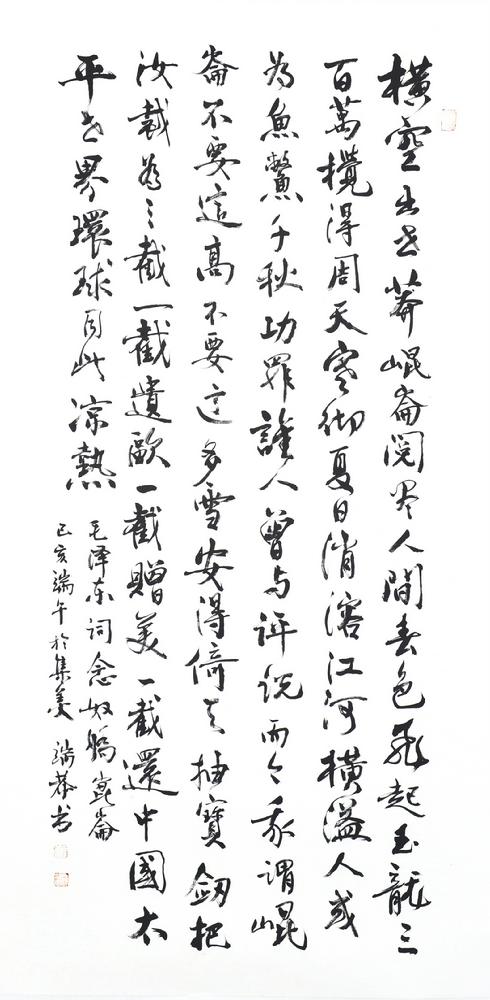 橫空出世莽崐崙閱尽人間春色飛起玉龍三
百萬攪得周天寒彻夏日消溶江河橫溢人或
為魚鱉千秋功罪誰人曾与評說而今我謂崐
崙不要這高不要这多雪安得倚天抽寶劔把
汝裁為三截一截遺歐一截贈美一截還中國太
平世界環球同此涼熱
毛泽东词念奴嬌崑崙
己亥端午於集美 瑞恭书